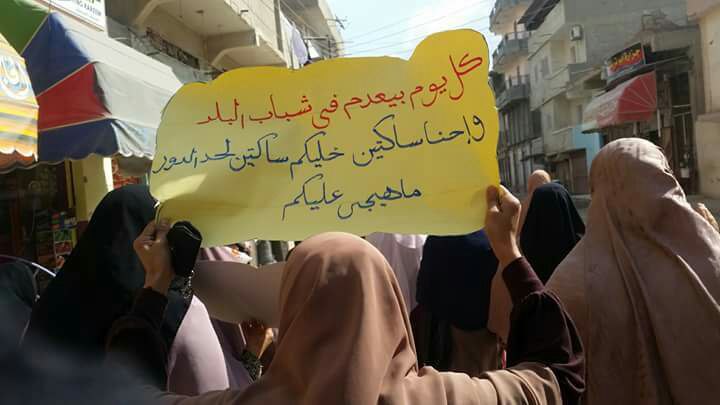 كل يوم بيعدم في شباب البلد
و إحنا ساكتين خليكم ساكتين لحد الدور
ما هيجي عليكم